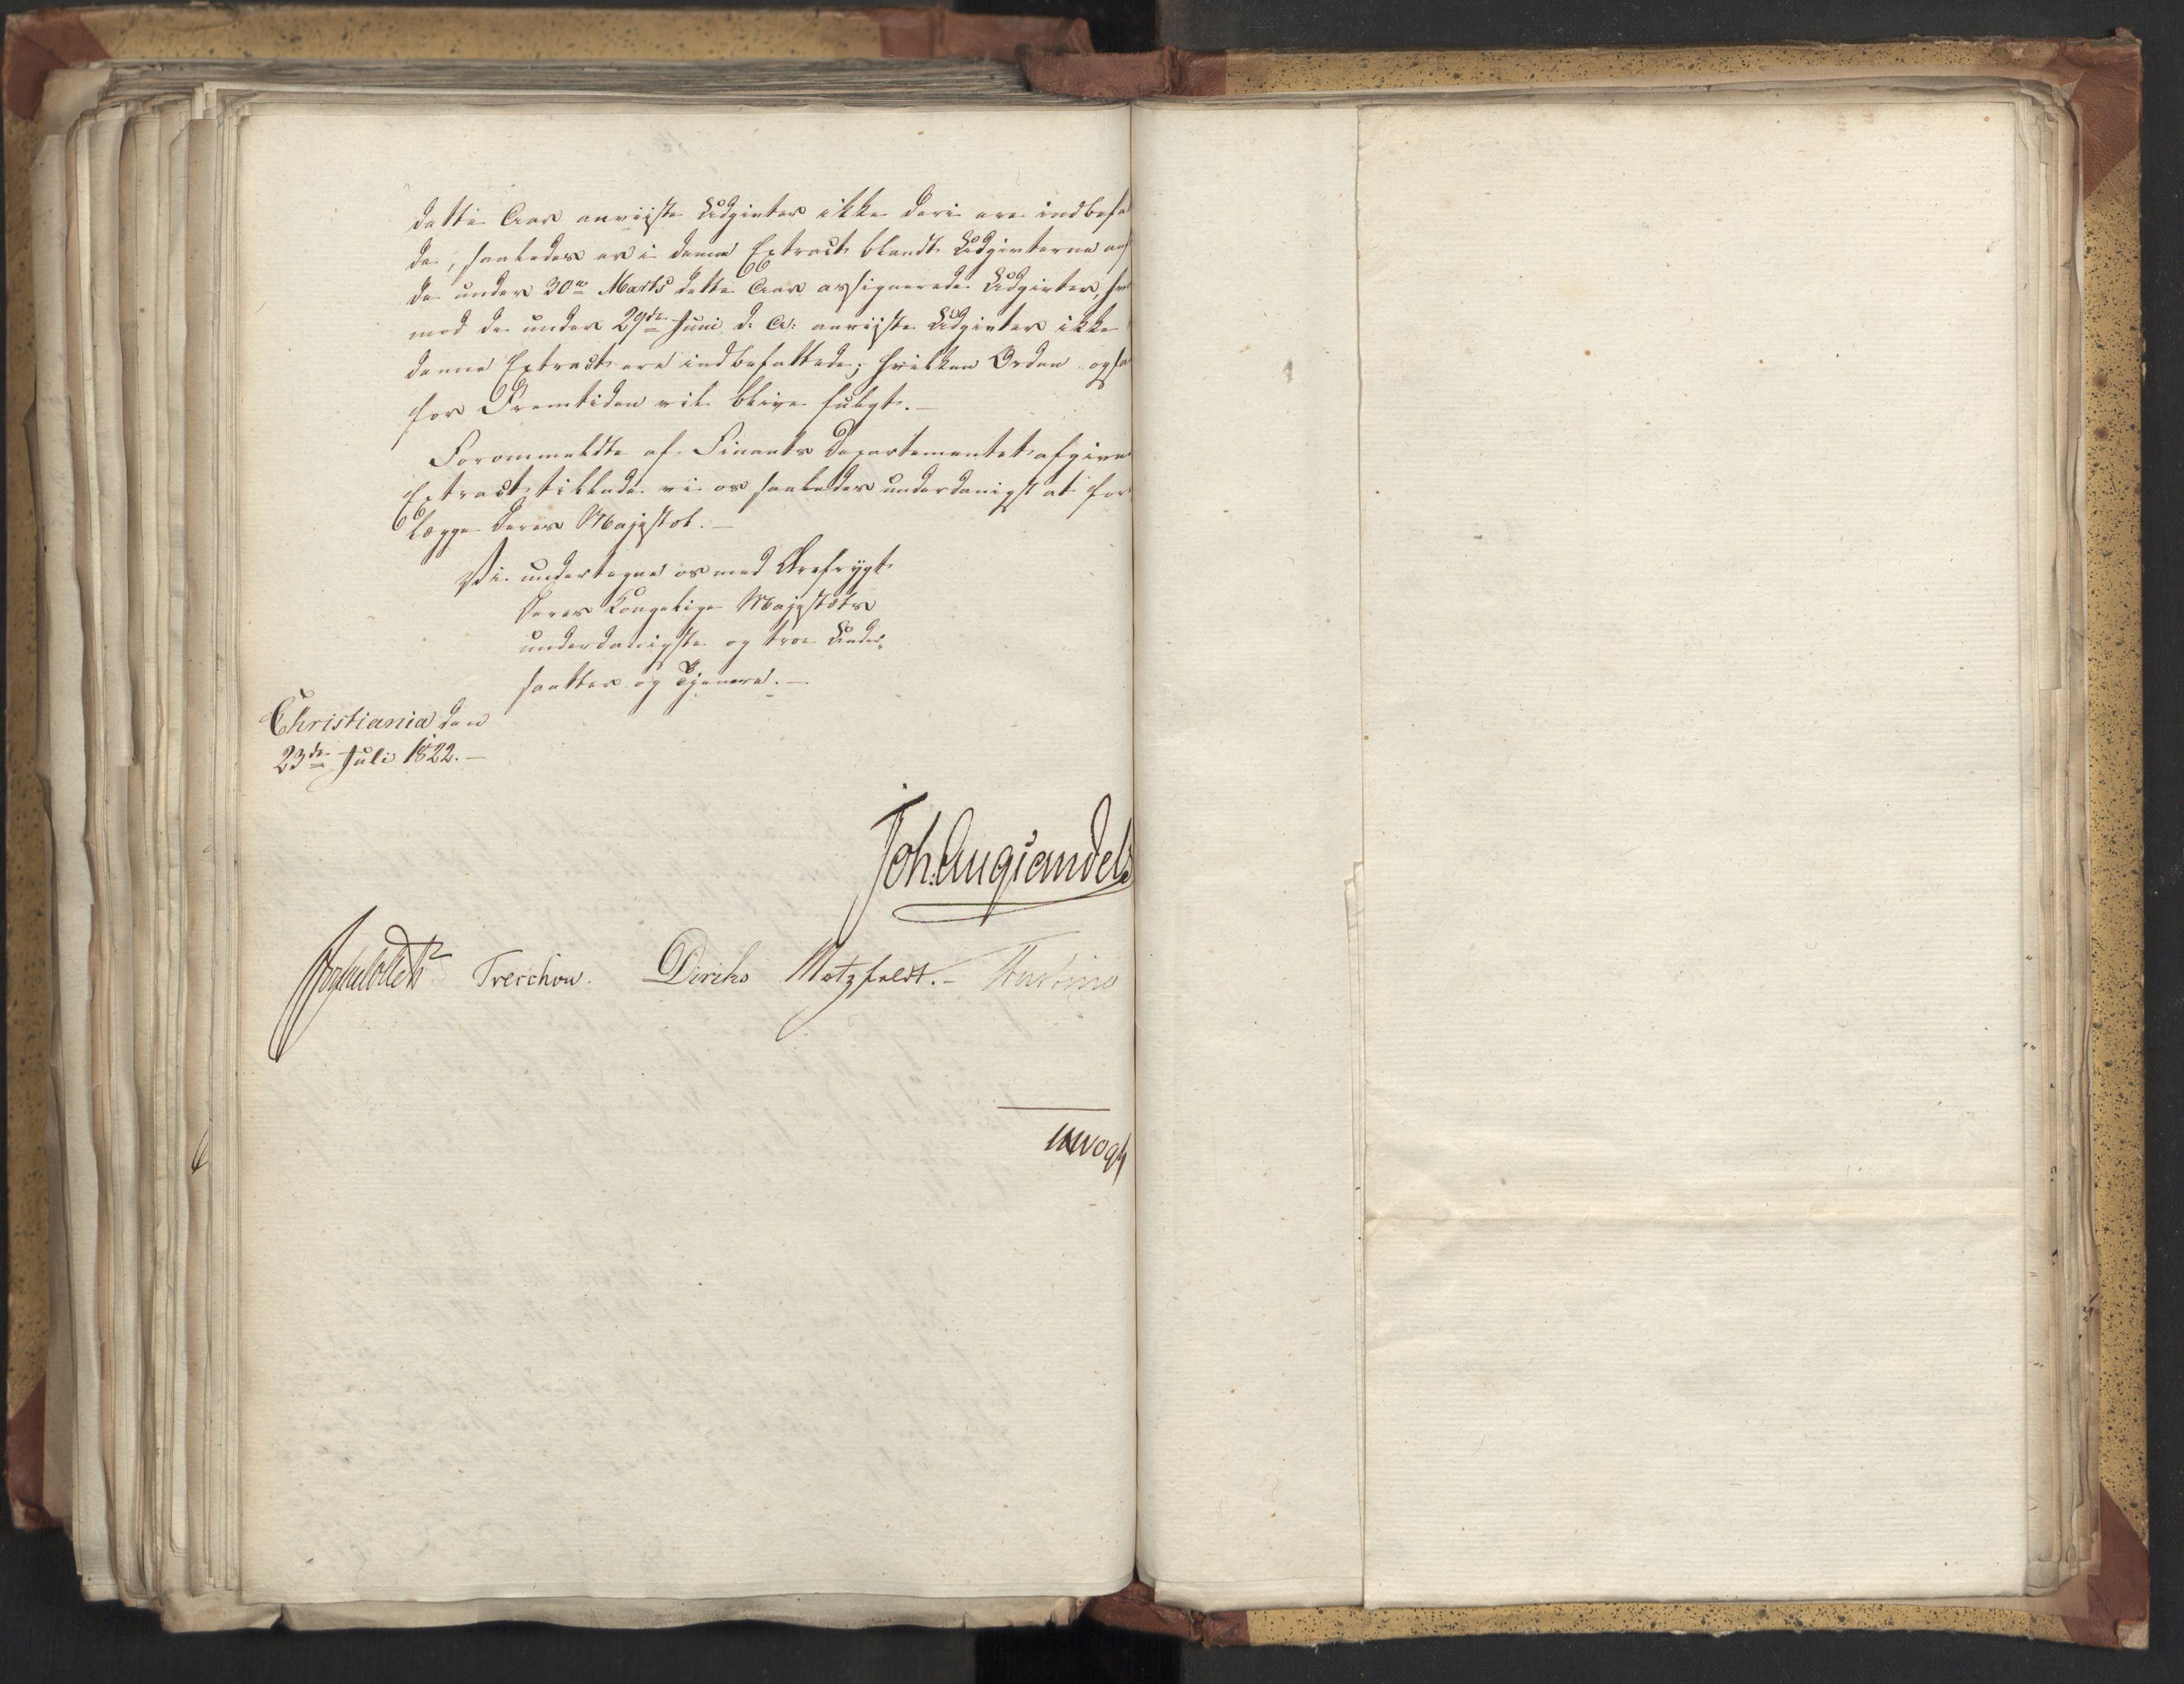 dette Aar anviiste Udgivter ikke deri ere indbefa
de, saaledes er i denne Extract blandt Udgivterne an
de under 30te Marts dette Aar assignerede Udgivter,
mod de under 29de Juni d. A: anviiste Udgivter ikke
denne Extract ere indbefattede; hvilken Orden ogsaa
for Fremtiden vil blive fulgt.—
Forommeldte af Finants Departementet afgivne
Extract tillade vi os saaledes underdanigst at fore
lægge Deres Majestæt.—
Vi undertegne os med Ærefrygt
Deres Kongelige Majestæts
underdanigste og troe Under„
saatter og Tjenere.—
Christiania den
23de Juli 1822.—
Joh. Aug Sandels
Treschow. Diriks Motzfeldt.-